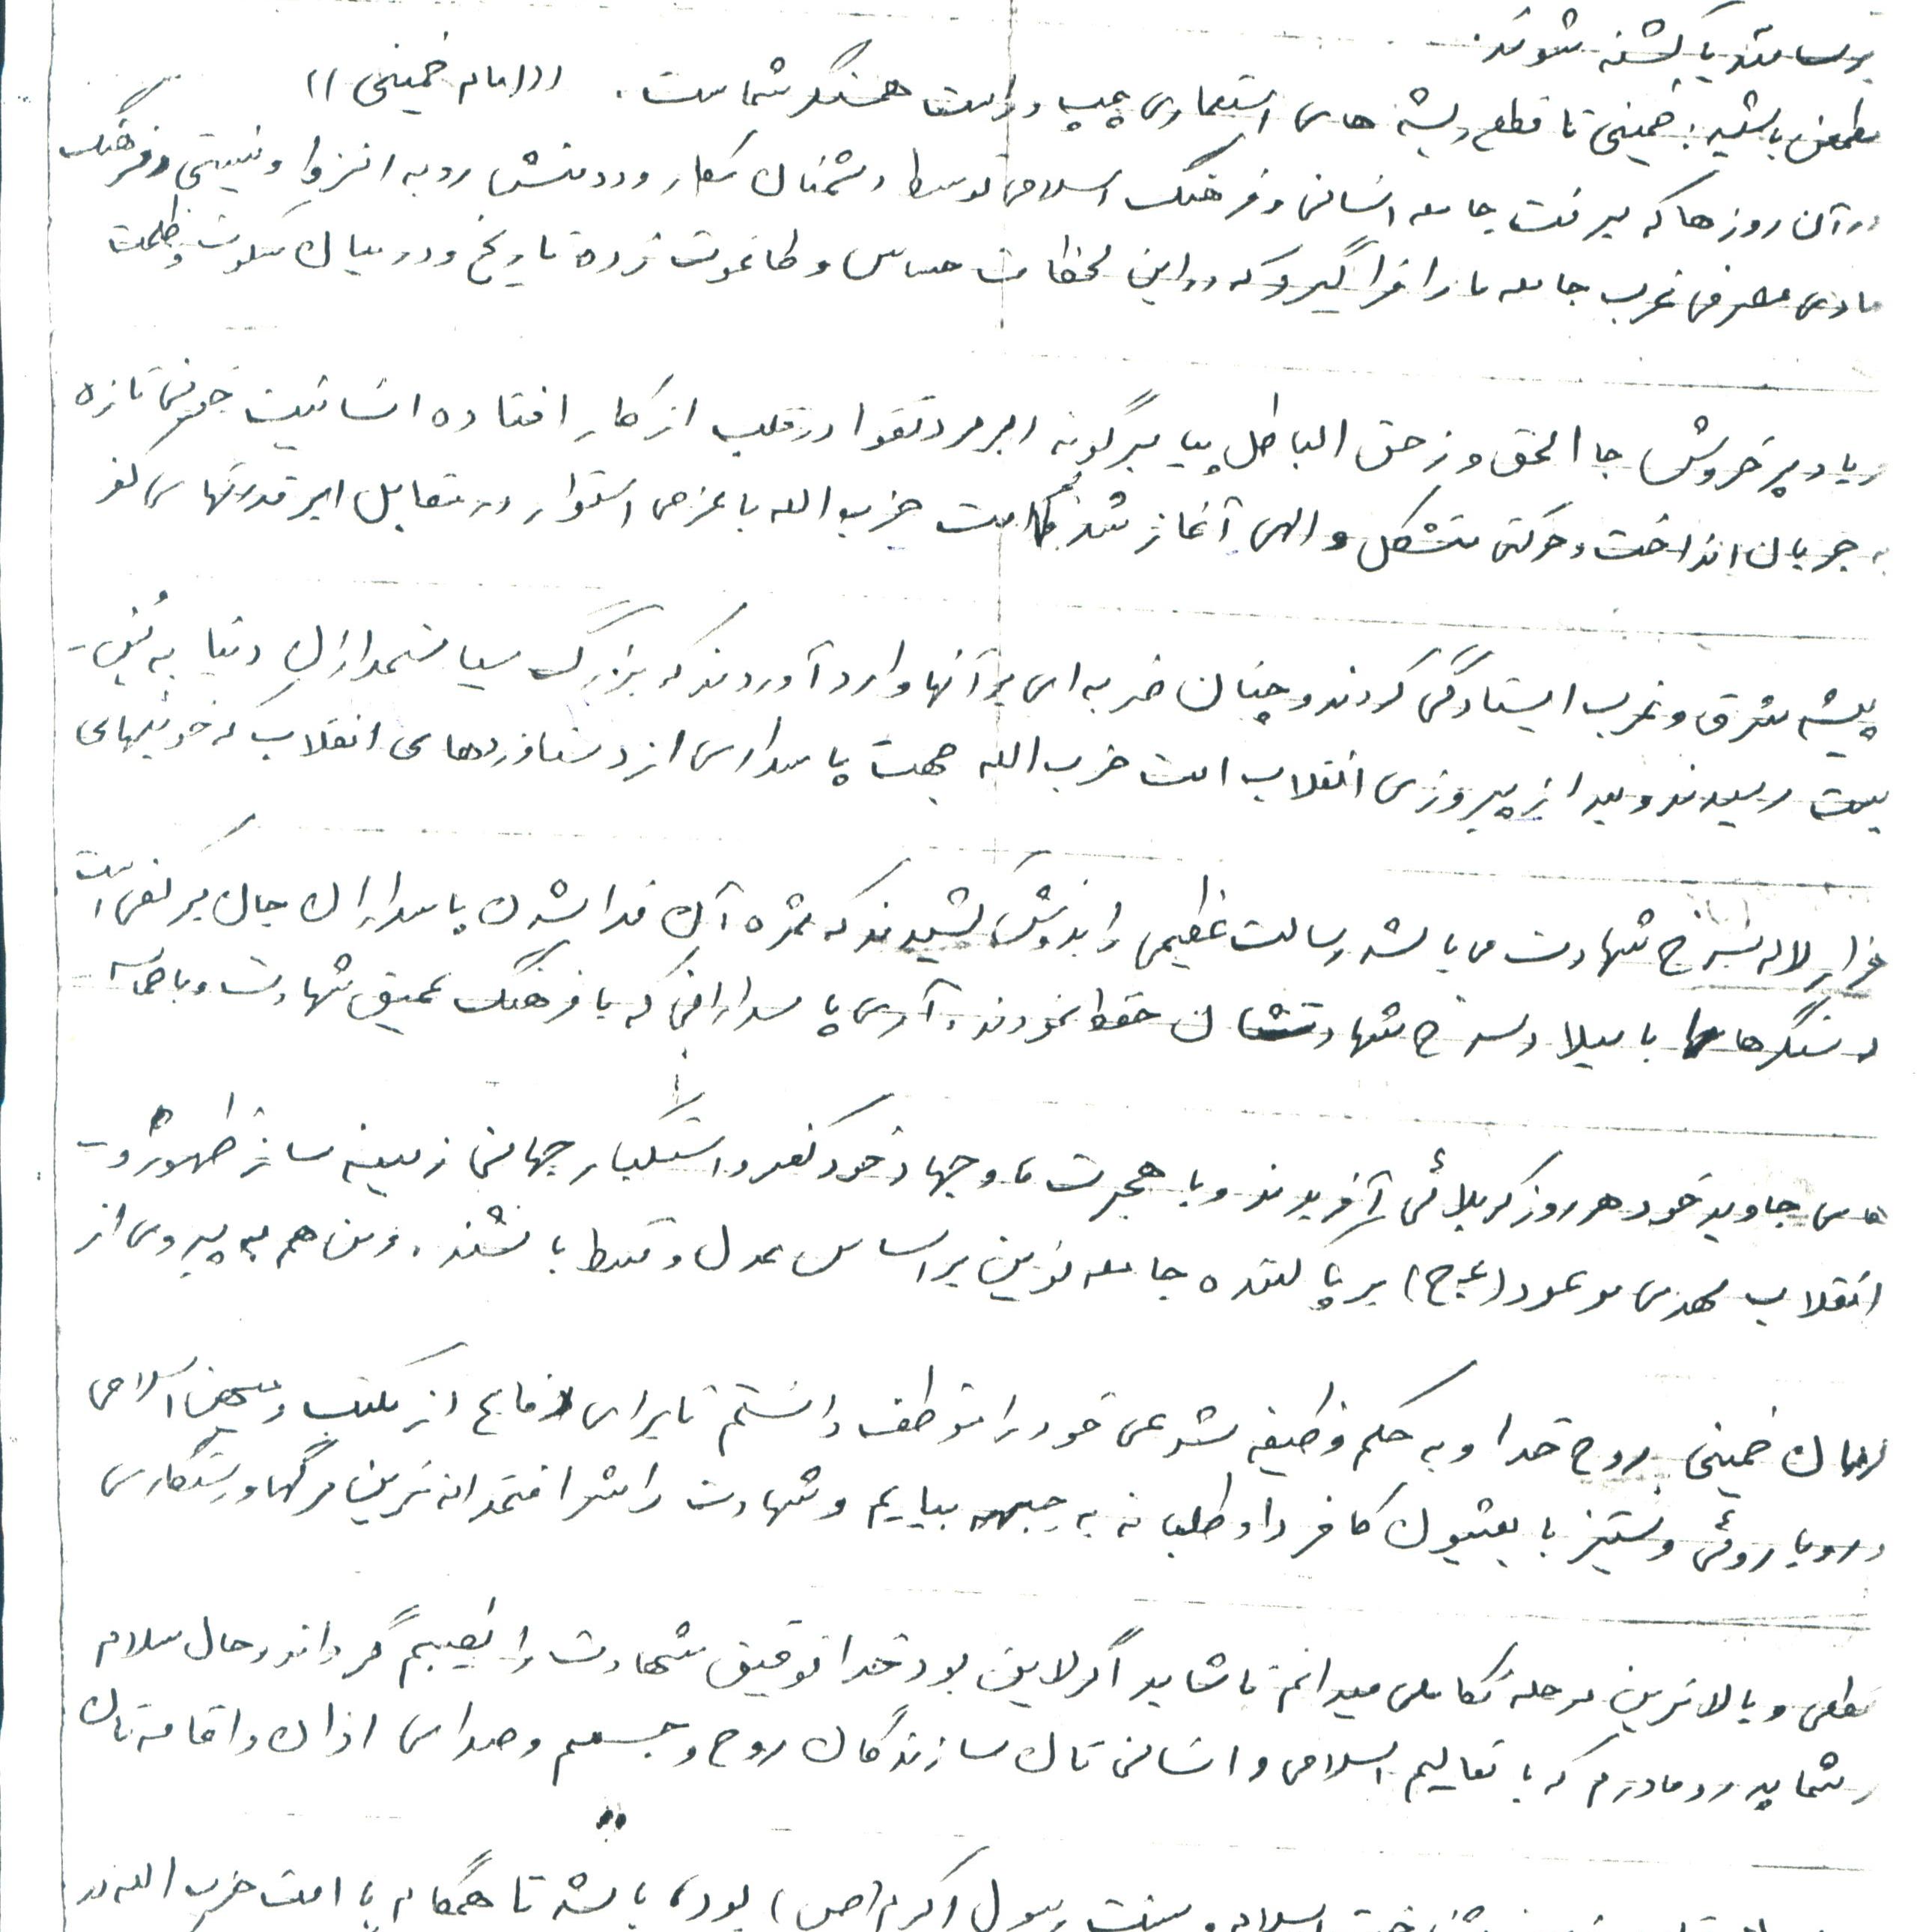 برسانند یا کشته شوند.
مطمئن باشید: خمینی تا قطع ریشه های استعماری چپ و راست همسنگر شماست. ((امام خمینی))
در آن روزها که میرفت جامعه انسانی و فرهنگ اسلامی توسط دشمنان مکار و ددمنش رو به انزوا و نیستی و فرهنگ
مادی مصرفی غرب جامعه ما را فراگیرد که در این لحظات حساس و طاغوت زده تاریخ و در میان سکوت و ظلمت
فریاد پرخروش جا الحق و زحق الباطل پیامبرگونه ابرمرد تقوا در قلب از کار افتاده انسانیت خونی تازه
به جریان انداخت و حرکتی متشکل و الهی آغاز شد که امت حزب الله با عزمی استوار در مقابل ابرقدرتهای کفر
پیشه شرق و غرب ایستادگی کردند و چنان ضربه ای بر آنها وارد آوردند که بزرگ سیاستمداران دنیا به بُن-
بست رسیدند و بعد از پیروزی انقلاب امت حزب الله جهت پاسداری از دستاوردهای انقلاب که خونبهای
هزار لاله سرخ شهادت می باشد رسالت عظیمی را بدوش کشیدند که ثمره آن فدا شدن پاسداران جان بر کف است
که سنگرها را با میلاد سرخ شهادتشان حفظ نمودند، آری پاسدارانی که با فرهنگ عمیق شهادت و با حماسه
های جاوید خود هر روز کربلائی آفریدند و با هجرت ها و جهاد خود کفر و استکبار جهانی را زمینه ساز ظهور و
انقلاب مهدی موعود (عج) برپا کننده جامعه نوین بر اساس عدل و قسط باشند. و من هم به پیروی از
فرمان خمینی روح خدا و به حکم وظیفه شرعی خود را موظف دانستم تا برای دفاع از مکتب و میهن اسلامی
در رویاروئی و ستیز با بعثیون کافر داوطلبانه به جبهه بیایم و شهادت را شرافتمدانه ترین مرگها و رستگاری
مطلق و بالاترین مرحله تکاملی میدانم تا شاید اگر لایق بود خدا توفیق شهادت را نصیبم گرداند و حال سلام
بر شما پدر و مادرم که با تعالیم اسلامی و انسانی تان سازندگان روح و جسمم و صدای اذان و اقامه تان
اسلام و سنت رسول اکرم (ص) بود، باشد تا همگام با امت حزب الله در